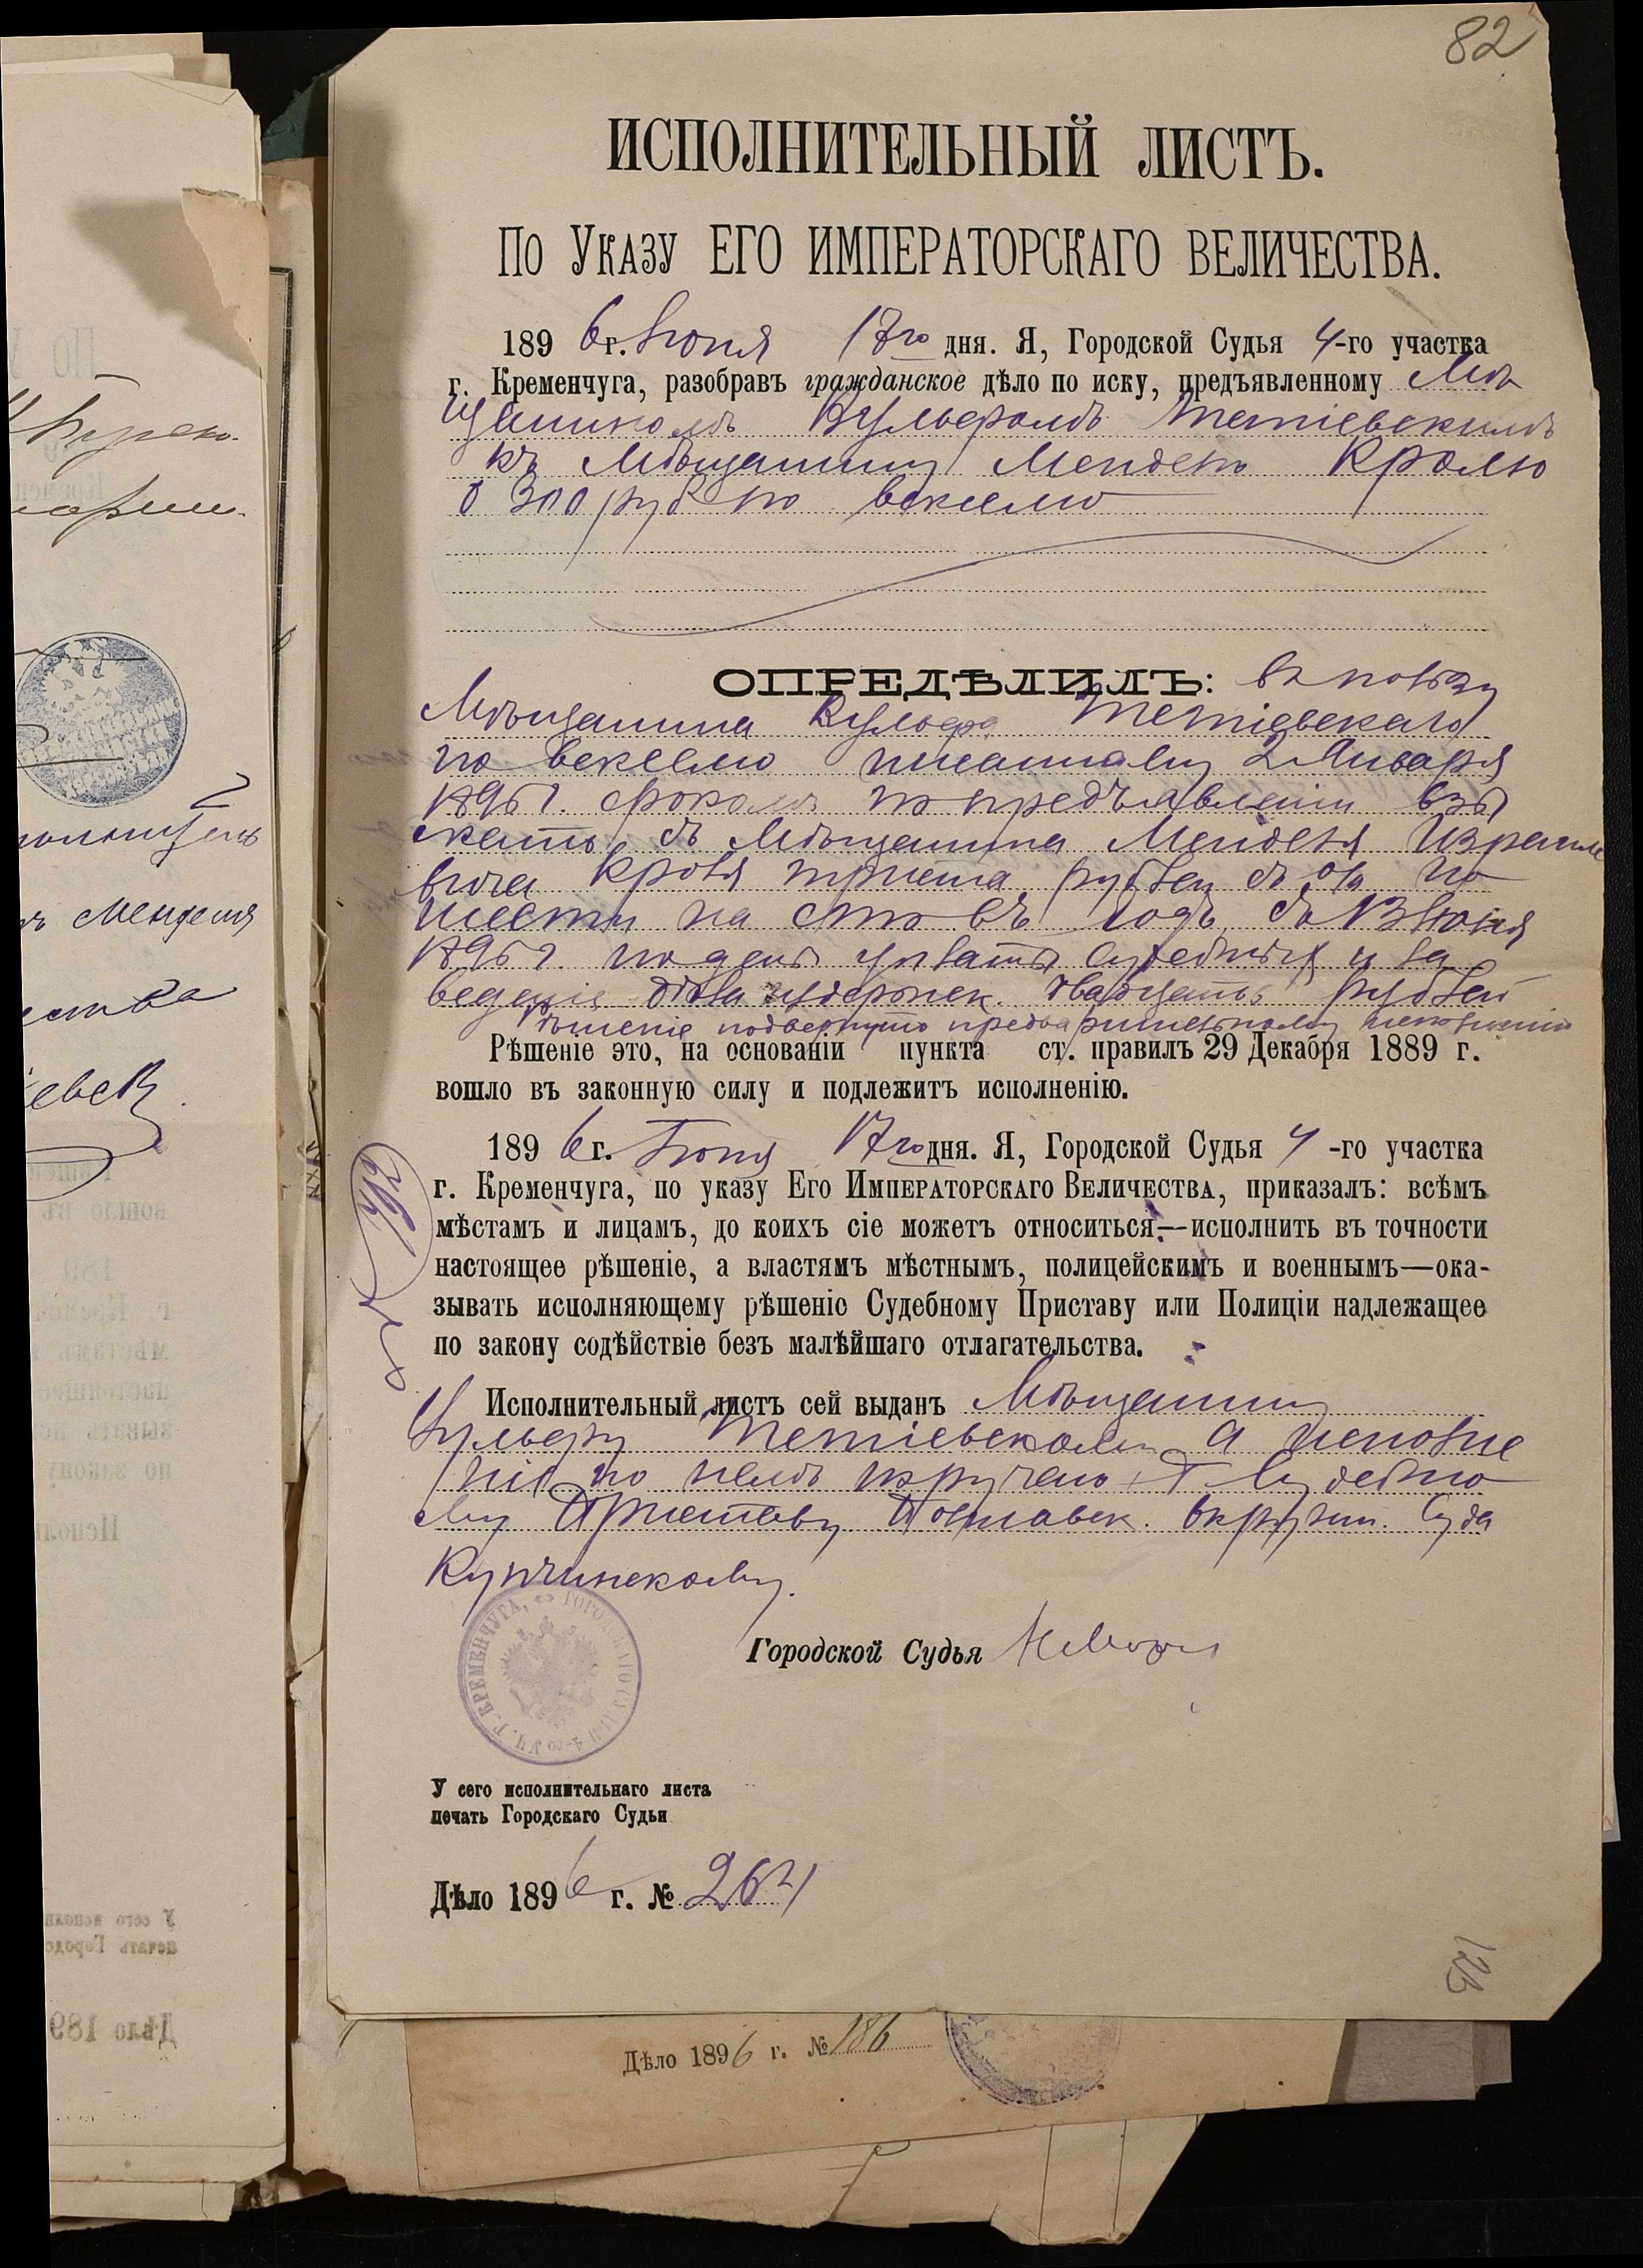 82
ИСПОЛНИТЕЛЬНЫЙ ЛИСТЪ.
По Указу ЕГО ИМПЕРАТОРСКАГО ВЕЛИЧЕСТВА.
1896 г. Июня 17го дня. Я, Городской Судья 4-го участка
г. Кременчуга, разобравъ гражданское дѣло по иску, предъявленному Мѣ
щаниномъ Вульфомъ Тетіевскимъ
къ Мѣщанину Менделю Кролю
о 300 руб по векселю
ОПРЕДѢЛИЛЪ: въ пользу
Мѣщанина Вульфа Тетіевскаго
по векселю писанному 2 Января
1896 г. срокомъ по предъявленіи взы
скать съ Мѣщанина Менделя Израиле
вича Кроля триста рублей съ % по
шести на сто въ годъ съ 13 Июня
1896 г. по день уплаты судебныхъ и за
веденіе дѣла издержек. двадцать рублей
Рѣшеніе подвергнуто предварительному исполненію
Рѣшеніе это, на основаніи пункта ст. правилъ 29 Декабря 1889 г.
вошло въ законную силу и подлежитъ исполненію.
1896 г. Июня 17го дня. Я, Городской Судья 4-го участка
г. Кременчуга, по указу Его Императорскаго Величества, приказалъ: всѣмъ
мѣстамъ и лицамъ, до коихъ сіе можетъ относиться:—исполнить въ точности
настоящее рѣшеніе, а властямъ мѣстнымъ, полицейскимъ и военнымъ—ока-
зывать исполняющему рѣшеніе Судебному Приставу или Полиціи надлежащее
по закону содѣйствіе безъ малѣйшаго отлагательства.
Исполнительный листъ сей выданъ Мѣщанину
Вульфу Тетіевскому а исполне
ніе по немъ поручено Судебно
му Приставу Полтавск. Окружн. Суда
Купчинскому.
Городской Судья
Г. КРЕМЕНЧУГА, ГОРОДСКАГО СУДЬИ 4-го УЧ.
У сего исполнительнаго листа
печать Городскаго Судьи
Дѣло 1896 г. № 264
125
Дѣло 1896 г. № 186
Менделя